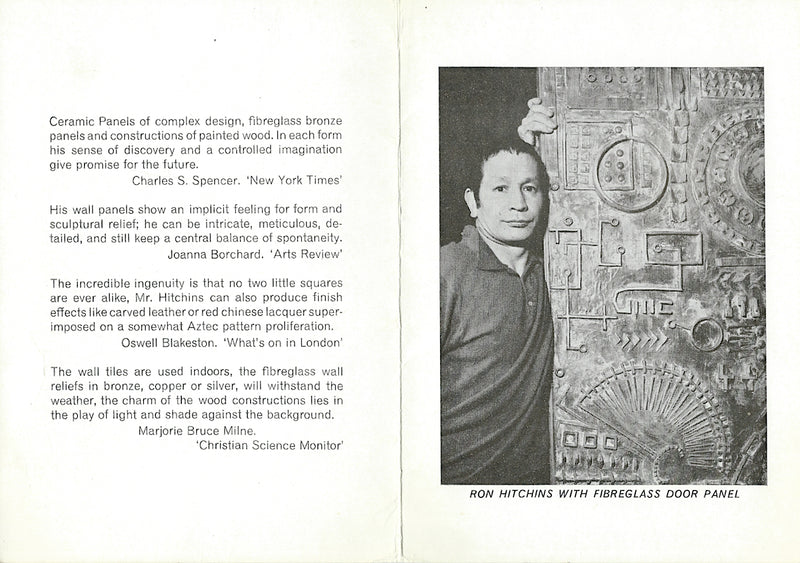 Ceramic Panels of complex design, fibreglass bronze
panels and constructions of painted wood. In each form
his sense of discovery and a controlled imagination
give promise for the future.
Charles S. Spencer. ‘New York Times’
His wall panels show an implicit feeling for form and
sculptural relief; he can be intricate, meticulous, de-
tailed, and still keep a central balance of spontaneity.
Joanna Borchard. ‘Arts Review’
The incredible ingenuity is that no two little squares
are ever alike, Mr. Hitchins can also produce finish
effects like carved leather or red chinese lacquer super-
imposed on a somewhat Aztec pattern proliferation.
Oswell Blakeston. ‘What's on in London’
The wall tiles are used indoors, the fibreglass wall
reliefs in bronze, copper or silver, will withstand the
weather, the charm of the wood constructions lies in
the play of light and shade against the background.
Marjorie Bruce Milne.
‘Christian Science Monitor’
RON HITCHINS WITH FIBREGLASS DOOR PANEL